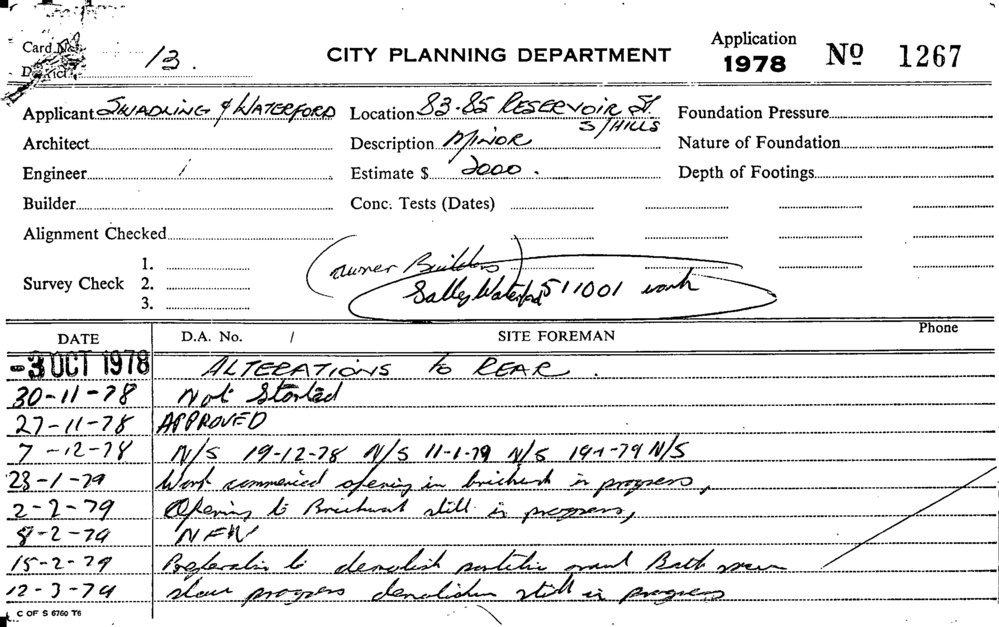 Card No. 13.
District
CITY PLANNING DEPARTMENT
Application
1978
No 1267
Applicant SWADLING & WATERFORD
Location 83-85 RESERVOIR St
S/HILLS
Foundation Pressure
Architect
Description MINOR
Nature of Foundation
Engineer
Estimate $ 2000.
Depth of Footings
Builder
Conc. Tests (Dates)
Alignment Checked
Survey Check
1.
2.
3.
(owner Builders)
Sally Waterford 511001 work
DATE
D.A. No. /
SITE FOREMAN
Phone
-3 OCT 1978 ALTERATIONS to REAR.
30-11-78 Not Started
27-11-78 APPROVED
7-12-78 N/S 19-12-78 N/S 11-1-79 N/S 19-1-79 N/S
23-1-79 Work commenced opening in brickwork in progress,
2-2-79 Opening to Brickwork still in progress,
8-2-79 NFW
15-2-79 to demolish Bath room
12-3-79 slow progress demolition still in progress
C OF S 6760 T6